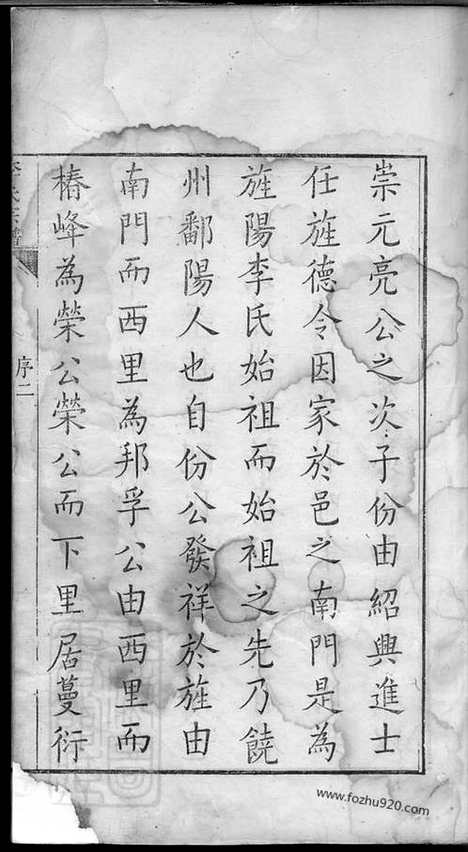 崇元亮公之次子份由紹興進士
任旌德令因家於邑之南門是為
旌陽李氏始祖而始祖之先乃饒
州鄱陽人也自份公發祥於旌由
南門而西里為邦孚公由西里而
椿峰為榮公榮公而下里居蔓衍
序二
www.fozhu920.com